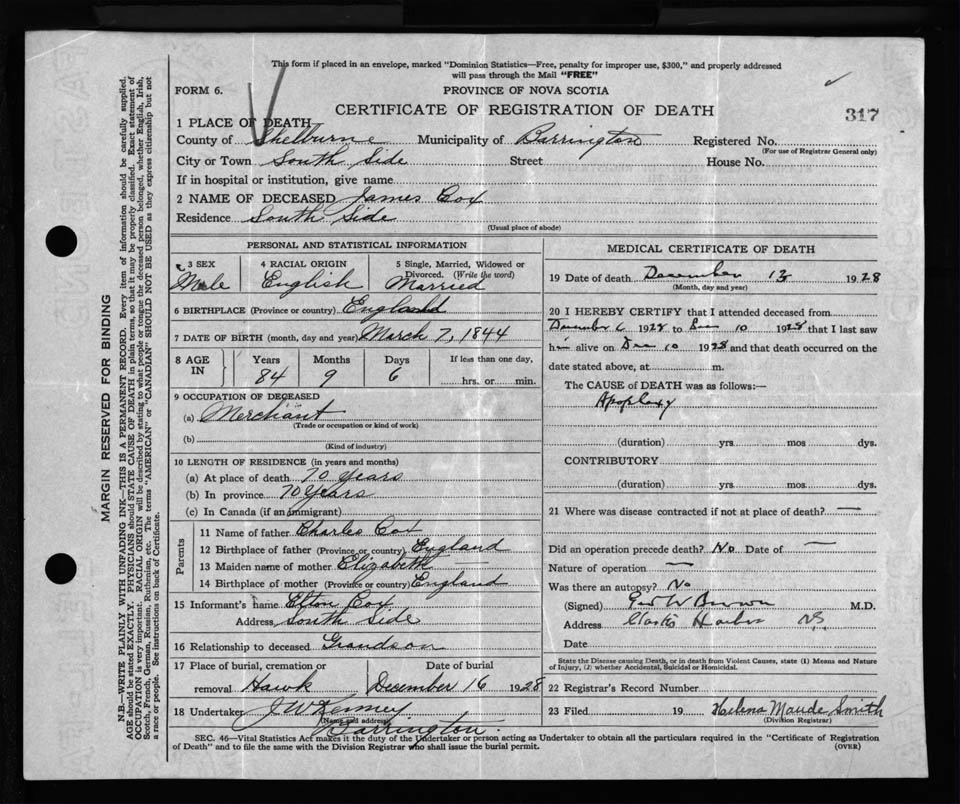 This form if placed in an envelope, marked "Dominion Statistics—Free, penalty for improper use, $300," and properly addressed
will pass through the Mail "FREE"
FORM 6.
PROVINCE OF NOVA SCOTIA
CERTIFICATE OF REGISTRATION OF DEATH
317
1 PLACE OF DEATH
County of Shelburne Municipality of Barrington Registered No.
(For use of Registrar General only)
City or Town South Side Street House No.
If in hospital or institution, give name
2 NAME OF DECEASED James Cox
Residence South Side
(Usual place of abode)
PERSONAL AND STATISTICAL INFORMATION
3 SEX
Male
4 RACIAL ORIGIN
English
5 Single, Married, Widowed or
Divorced. (Write the word)
Married
6 BIRTHPLACE (Province or country) England
7 DATE OF BIRTH (month, day and year) March 7, 1844
8 AGE IN
Years Months Days If less than one day,
84 9 6 hrs. or min.
9 OCCUPATION OF DECEASED
(a) Merchant
(Trade or occupation or kind of work)
(b)
(Kind of industry)
10 LENGTH OF RESIDENCE (in years and months)
(a) At place of death 70 years
(b) In province 70 years
(c) In Canada (if an immigrant)
Parents
11 Name of father Charles Cox
12 Birthplace of father (Province or country) England
13 Maiden name of mother Elizabeth —
14 Birthplace of mother (Province or country) England
15 Informant's name Elton Cox
Address South Side
16 Relationship to deceased Grandson
17 Place of burial, cremation or Date of burial
removal Hawk December 16 1928
18 Undertaker J W Kenney
(Name and address)
Barrington.
MEDICAL CERTIFICATE OF DEATH
19 Date of death December 13 1928
(Month, day and year)
20 I HEREBY CERTIFY that I attended deceased from
December 6 1928 to Dec 10 1928 that I last saw
him alive on Dec 10 1928 and that death occurred on the
date stated above, at m.
The CAUSE OF DEATH was as follows:—
Apoplexy
(duration) yrs. mos dys.
CONTRIBUTORY
(duration) yrs. mos. dys.
21 Where was disease contracted if not at place of death? —
Did an operation precede death? No Date of —
Nature of operation —
Was there an autopsy? No
(Signed) Geo W Brown M.D.
Address Clarks Harbor N.S.
Date
State the Disease causing Death, or in death from Violent Causes, state (1) Means and Nature
of Injury, (2) whether Accidental, Suicidal or Homicidal.
22 Registrar's Record Number
23 Filed 19 Helena Maude Smith
(Division Registrar)
SEC. 46—Vital Statistics Act makes it the duty of the Undertaker or person acting as Undertaker to obtain all the particulars required in the "Certificate of Registration
of Death" and to file the same with the Division Registrar who shall issue the burial permit.
(OVER)
MARGIN RESERVED FOR BINDING
N.B.—WRITE PLAINLY WITH UNFADING INK—THIS IS A PERMANENT RECORD. Every item of information should be carefully supplied.
AGE should be stated EXACTLY. PHYSICIANS should STATE CAUSE OF DEATH in plain terms, so that it may be properly classified. Exact statement of
OCCUPATION is very important. RACIAL ORIGIN will be described by stating to what people or tongue the deceased person belonged, whether English, Irish,
Scotch, French, German, Russian, Ruthenian, etc. The terms "AMERICAN" or "CANADIAN" SHOULD NOT BE USED as they express citizenship but not
a race or people. See instructions on back of Certificate.